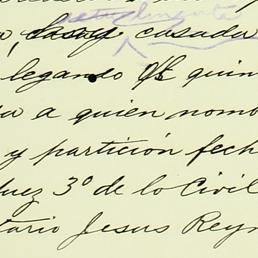 actualmente
casada
legando el quin
a a quien nomo
y partición fech
Juez 3º de lo Civil
tario Jesus Reyn